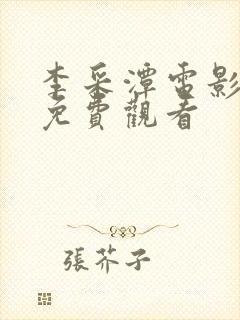 李采潭電影
免費觀看
張芥子